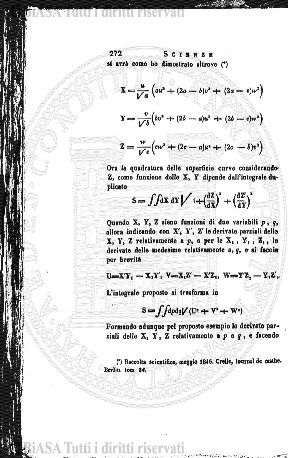 BiASA Tutti i diritti riservati
272 SCIENZE
si avrà come ho dimostrato altrove (*)
X = u/√a (au² + (2a − b)v² + (2a − c)w²)
Y = v/√b (bv² + (2b − a)u² + (2b − c)w²)
Z = w/√c (cw² + (2c − a)u² + (2c − b)v²)
Ora la quadratura delle superficie curve considerando
Z, come funzione delle X, Y dipende dall'integrale du-
plicato
S = ∫∫dX dY √ 1+(dZ/dX)² + (dZ/dY)²
Quando X, Y, Z sieno funzioni di due variabili p, q,
allora indicando con X', Y', Z' le derivate parziali delle
X, Y, Z relativamente a p, e per le X₁, Y₁, Z₁, le
derivate delle medesime relativamente a, q, e si faccia
per brevità
U=X'Y₁ − X₁Y', V=X₁Z' − X'Z₁, W=Y'Z₁ − Y₁Z',
L'integrale proposto si trasforma in
S = ∫∫dpdq√(U² + V² + W²)
Formando adunque pel proposto esempio le derivate par-
ziali delle X, Y, Z relativamente a p e q, e facendo
(*) Raccolta scientifica, maggio 1846. Crelle, journal de mathe.
Berlin. tom. 34.
BiASA Tutti i diritti riservati